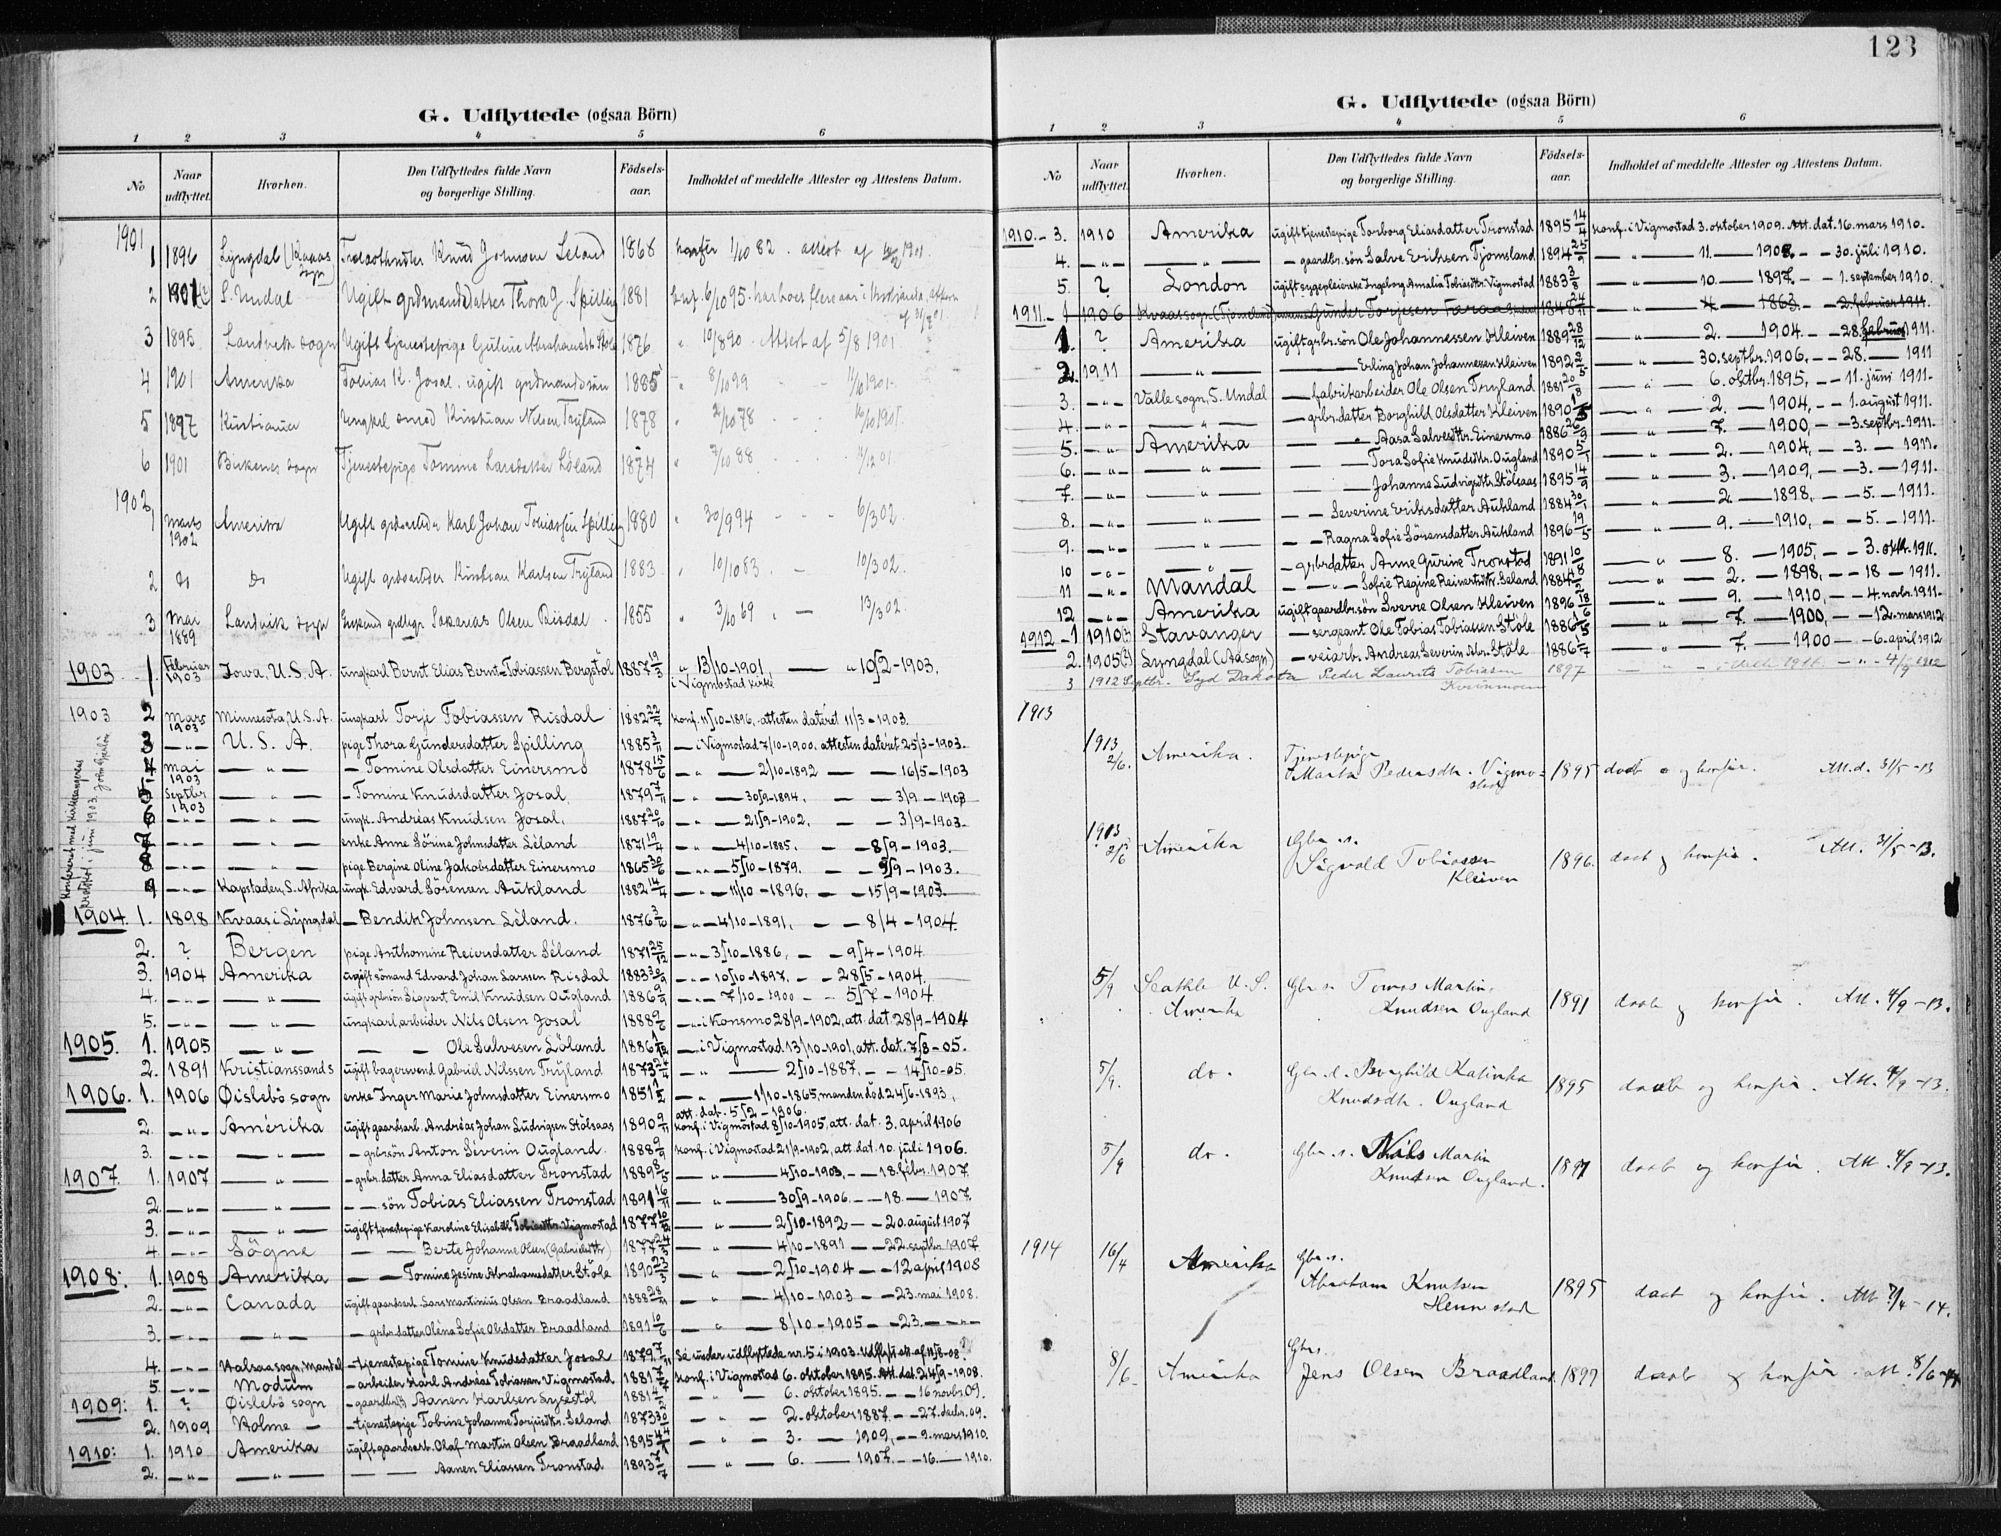 123
G. Udflyttede (ogsaa Börn)
1 2 3 4 5 6
No Naar udflyttet. Hvorhen. Den Udflyttedes fulde Navn og borgerlige Stilling. Födsels-aar. Indholdet af meddelte Attester og Attestens Datum.
1901
1 1896 Lyngdal (Kvaas sogn) Knud Johnsen Leland 1868 konfir 1/10 82. attest af 1901.
2 1901 S. Undal Ugift grdmandsdatter Thora J. Spilling 1881 konf. 6/10 95.
3 1895 Landvik sogn Ugift tjenestepige Guline Abrahamsdt. Støle 1876 " 10/890 - Attest af 5/8 1901
4 1901 Amerika Tobias K. Josal. ugift grdmandssøn 1885 " 8/10 99 - - 11/6 1901
5 1897 Kristiania Ungkarl Kristian Nilsen Tryland 1878 " 2/10 78 - - 16/10 1901.
6 1901 Bukenes sogn Tjenestepige Tomine Larsdatter Löland 1874 " 7/10 88 - - 11/12 01.
1902
1 Marts 1902 Amerika Ugift grdarbeider Karl Johan Tobiassen Spilling 1880 " 30/9 94 - - 6/3 02.
2 do do Ugift grdarbeider Kristian Karlsen Tryland 1883 " 10/10 83. - 10/3 02.
3 Mai 1889 Landvik sogn Sakarias Olsen Risdal. 1855 " 3/10 69 " - 13/3 02.
1903 1. Februar 1903 Iowa, U.S.A. ungkarl Bernt Elias Bernt-Tobiassen Bergstöl 1887 19/3 " 13/10-1901 — " 10/2-1903.
i Vigmostad kirke
1903 2 Mars 1903 Minnesota, U.S.A. ungkarl Torje Tobiassen Risdal 1882 konf. 11/10-1896. attesten dateret 11/3-1903.
3 — " — U. S. A. pige Thora Gundersdatter Spilling 1885 3/11 — i Vigmostad 7/10-1900. attesten dateret 25/3-1903.
4 mai 1903 — " — - Tomine Olsdatter Einersmo 1878 15/6 — " — 2/10-1892 — — 16/5-1903
5 Septbr 1903 — " — - Tomine Knudsdatter Josal. 1879 7/11 — " — 30/9-1894. — — 3/9-1903
6 — " — — " — ungk. Andréas Knudsen Josal. 1887 20/10 — " — 21/9-1902. — — 3/9-1903.
7 — " — — " — enke Anne Sörine Johnsdatter Léland 1871 19/4 — " — 4/10-1885. — — 8/9-1903.
8 — " — — " — pige Bergine Oline Jakobsdatter Einersmo 1865 30/6 — " — 5/10-1879. — — 9/9-1903.
9 — " — Kapstaden, S. Afrika ungk. Edvard Sörensen Aukland 1882 14/4 — " — 11/10-1896. — — 15/9-1903.
Konfereret med kirkesangerens protokol i juni 1903.
1904 1. 1898 Kvaas i Lyngdal — Bendik Johnsen Léland. 1876 3/10 — " — 4/10-1891, — — 8/4-1904.
2. ? Bergen pige Anthomine Reiersdatter Léland 1871 25/12 — " — 3/10-1886, — — 9/4-1904
3. 1904 Amerika ugift sömand Edvard Johan Larssen Risdal 1883 30/9 — " — 10/10-1897. — — 28/5-1904.
4. — " — — " — ugift grbrsön Sigvart Emil Knudsen Ougland 1886 9/9 — " — 7/10-1900 — — 5/7-1904.
5. — " — — " — ungkarl, arbeider Nils Olsen Josal 1888 9/6 — " — i Konsmo 28/9-1902, att. dat. 28/9-1904
1905. 1. 1905 — " — — — Ole Salvesen Löland 1886 1/12 — i Vigmostad 13/10-1901, att. dat. 7/3-05.
2. 1891 Kristianssands ugift bagersvend Gabriel Nilssen Tryland 1873 2/4 — " — 2/10-1887. — — 14/10-05.
1906. 1. 1906 Øislebö sogn enke Inger Marie Johnsdatter Einersmo 1851 — " — 1/10-1865, manden död 24/6-1893,
att. dat. 5/2-1906.
2. — " — Amérika ugift gaardsarb. Andréas Johan Ludvigsen Stölsaas 1890 9/11 konf. i Vigmostad 8/10-1905, att. dat. 3. april 1906
3. — " — — " — - grbrsön Anton Séverin Ougland. 1888 9/9 konf. i Vigmostad 21/9-1902, att. dat. 10. juli 1906.
1907. 1. 1907 — " — - grbr. datter Anna Eliasdatter Tronstad 1889 8/5 — " — 4/10-1903, — — 18. febr. 1907.
2. — " — — " — — sön Tobias Eliassen Tronstad 1891 16/11 — " — 30/9-1906. — — 18. — 1907.
3. — " — — " — ugift tjenestepige Karoline Elisabeth Tobiasdtr. Vigmostad 1877 10/12 — " — 2/10-1892 — — 20. august 1907
4. — " — Sögne — — Berte Johanne Olsen (Gabrielsdtr) 1877 24/5 — " — 4/10-1891 — — 22. septbr. 1907.
1908: 1. 1908 Amerika — — Tomine Jesine Abrahamsdatter Stöle 1890 23/5 — " — 2/10-1904 — — 12 april 1908
2. — " — Canada ugift gaardsarb. Lars Martinius Olsen Braadland 1888 28/11 — " — 4/10-1903 — — 23. mai 1908.
3. — " — — " — - grbr. datter Oléna Sofie Olsdatter Braadland 1891 10/6 — " — 8/10-1905 — — 23. — " —
4. — " — Halsaa sogn, Mandal - tjenestepige Tomine Knudsdatter Josal 1879 7/11 Se under udflyttede nr. 5 i 1903.
5. — " — Modum - arbeider Karl Andréas Tobiassen Vigmostad 1881 konf. i Vigmostad 6. oktober 1895. Att. dat. 24/9-1908.
1909: 1. ? Øislebö sogn - gaardbr. Aanen Karlsen Syrestöl 1881 — " — 6. oktober 1895. — — 16 novbr. 09.
2. 1909 Holme — - tjenestepige Tobine Johanne Torjusdtr. Leland 1873 — " — 2. oktober 1887. — — 27. decbr. 09.
1910: 1. 1910 Amerika ugift gaardsarb. Olaf Martin Olsen Braadland 1895 — " — 3. — 1909. — — 9. mars 1910.
2. — " — — " — — — Aanen Eliassen Tronstad 1893 — " — 6. — 1907. — — 16. — 1910.
G. Udflyttede (ogsaa Börn)
1 2 3 4 5 6
No Naar udflyttet. Hvorhen. Den Udflyttedes fulde Navn og borgerlige Stilling. Födsels-aar. Indholdet af meddelte Attester og Attestens Datum.
1910. - 3. 1910 Amerika ugift tjenestepige Torborg Eliasdatter Tronstad 1895 14/4 konf. i Vigmostad 3. oktober 1909. Att. dat. 16. mars 1910.
4. — " — — " — - gaardbr. sön Salve Eriksen Tjomsland 1894 25/9 — " — 11. — 1908 — — 30. juli 1910.
5. ? London ugift sygepleierske Ingeborg Amalia Tobiasdtr. Vigmostad 1883 3/8 — " — 10. — 1897. — — 1. september 1910.
1911. - 1 1906 Kvaas sogn (Tjomsland) Gunder Torjesen Faraas 1848 24/11 — " — 4. — 1863. — — 2. februar 1911.
1. ? Amerika ugift grbr. sön Ole Johannessen Kleiven 1889 28/12 — " — 2. — 1904. — — 28. februar 1911.
2. 1911 — " — — — Erling Johan Johannesen Kleiven 1892 — " — 30. septbr. 1906, — — 28. — 1911
3. — " — Valle sogn, S. Undal — fabrikarbeider Ole Olsen Tryland 1881 — " — 6. oktbr. 1895, — — 11. juni 1911.
4. — " — — " — — grbr. datter Borghild Olsdatter Kleiven 1890 — " — 2. — 1904, — — 1. august 1911.
5. — " — Amerika — " — Aasa Salvesdtr. Einersmo 1886 — " — 7. — 1900, — — 3. septbr. 1911.
6. — " — — " — — — Tora Sofie Knudsdtr. Ougland 1890 — " — 2. — 1904, — — 3. — 1911.
7. — " — — " — — — Johanne Ludvigsdtr. Stölsaas 1895 14/9 — " — 3. — 1909, — — 3. — 1911.
8. — " — — " — — Severine Eriksdatter Aukland 1884 30/1 — " — 2. — 1898, — — 5. — 1911.
9. — " — — " — — — Ragna Sofie Sörensdatter Aukland 1896 19/5 — " — 9. — 1910, — — 5. — 1911.
10 — " — — " — - grbrdatter Anne Gurine Tronstad 1891 10/10 — " — 8. — 1905, — — 3. oktbr. 1911.
11 — " — Mandal — " — Sofie Regine Reinertsdtr. Leland 1884 — " — 2. — 1898, — — 18 — 1911.
12 — " — Amerika ugift gaardbr. sön Sverre Olsen Kleiven 1896 — " — 9. — 1910, — — 4. novbr. 1911.
1912 - 1 1910 (?) Stavanger — sergeant Ole Tobias Tobiassen Stöle 1886 1/5 — " — 7. — 1900, — — 12. mars 1912
2. 1905 (?) Lyngdal (Aa sogn) — veiarb. Andreas Severin Abr. Stöle 1886 — " — 7. — 1900 — — 6. april 1912
3 1912 Septbr. Syd Dakota Peder Laurits Tobiassen 1897 4/9 1912
1913
1913 2/6. Amerika. Tjenestepige
Marta Pedersdtr. Vigmostad 1895 daab og konfir. Att. d. 31/5-13
1913 2/6 Amerika Gbr. s.
Sigvald Tobiassen Kleiven 1896. daab og konfir. Att. 31/5-13.
5/9 Seattle U. S. Amerika Gbr s. Tomas Martin Knudsen Ougland 1891 daab og konfir. Att. 4/9-13.
5/9. do. Gbr. d. Borghild Katinka Knudsdtr. Ougland 1895 daab og konfir. Att. 4/9-13.
5/9 do. Gbr. s. Nils Martin Knudsen Ougland. daab og konfir. Att. 4/9-13.
1914 16/4 Amerika Gbr. s.
Abraham Knutsen Hennestad 1895 daab og konfir. Att. 7/4-14.
8/6 Amerika Gbr s.
Jens Olsen Braadland 1897 daab og konfir. Att. 8/6-14